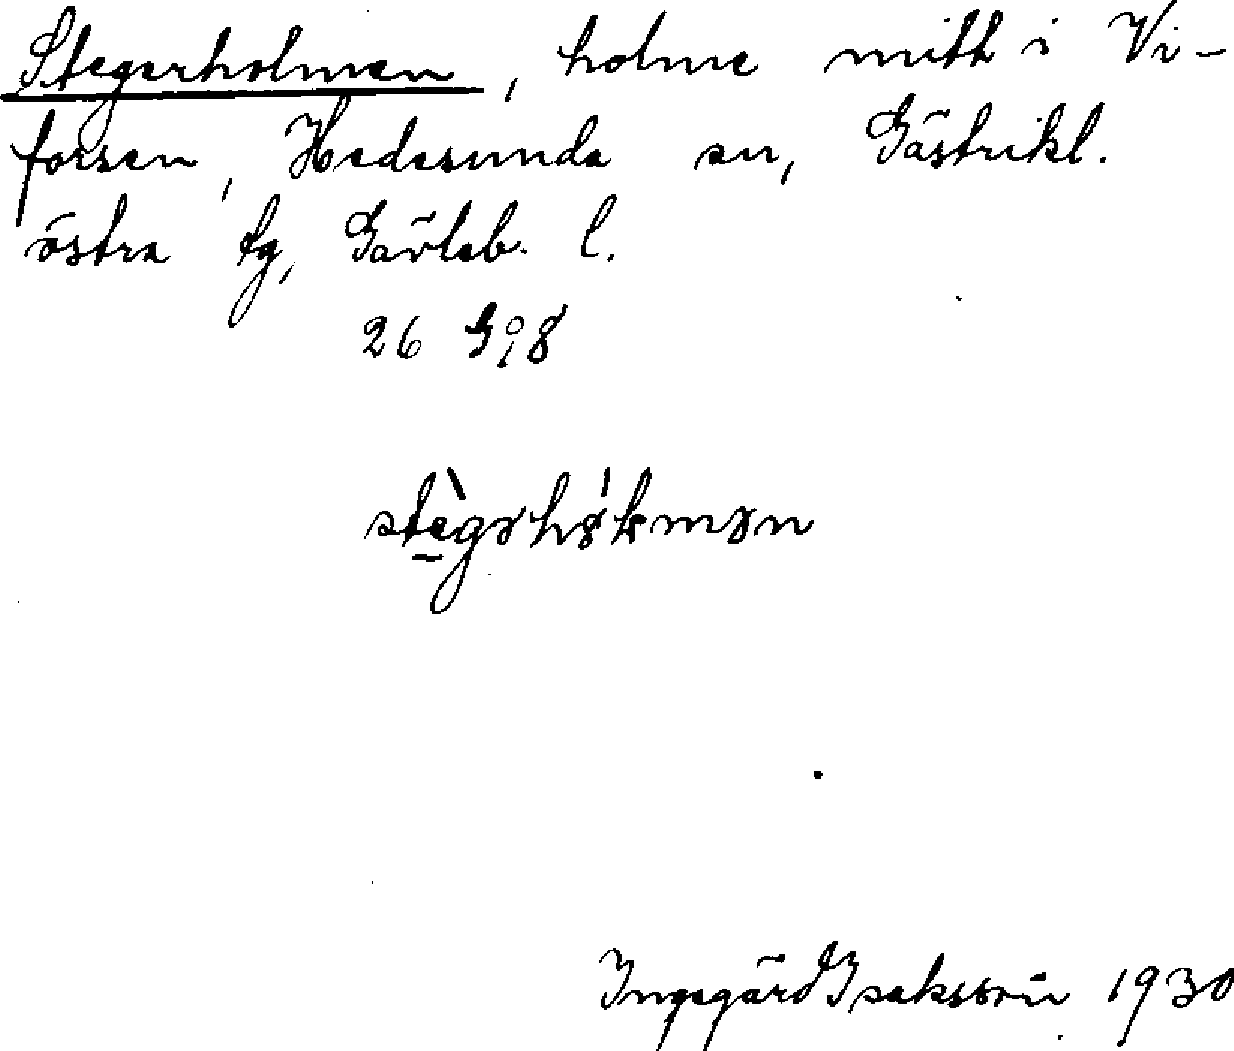 Stegerholmen, holme mitt i Vi-
forsen, Hedesunda sn, Gästrikl.
östra tg, Gävleb. l.
26 G 8
Ingegärd Isaksson 1930